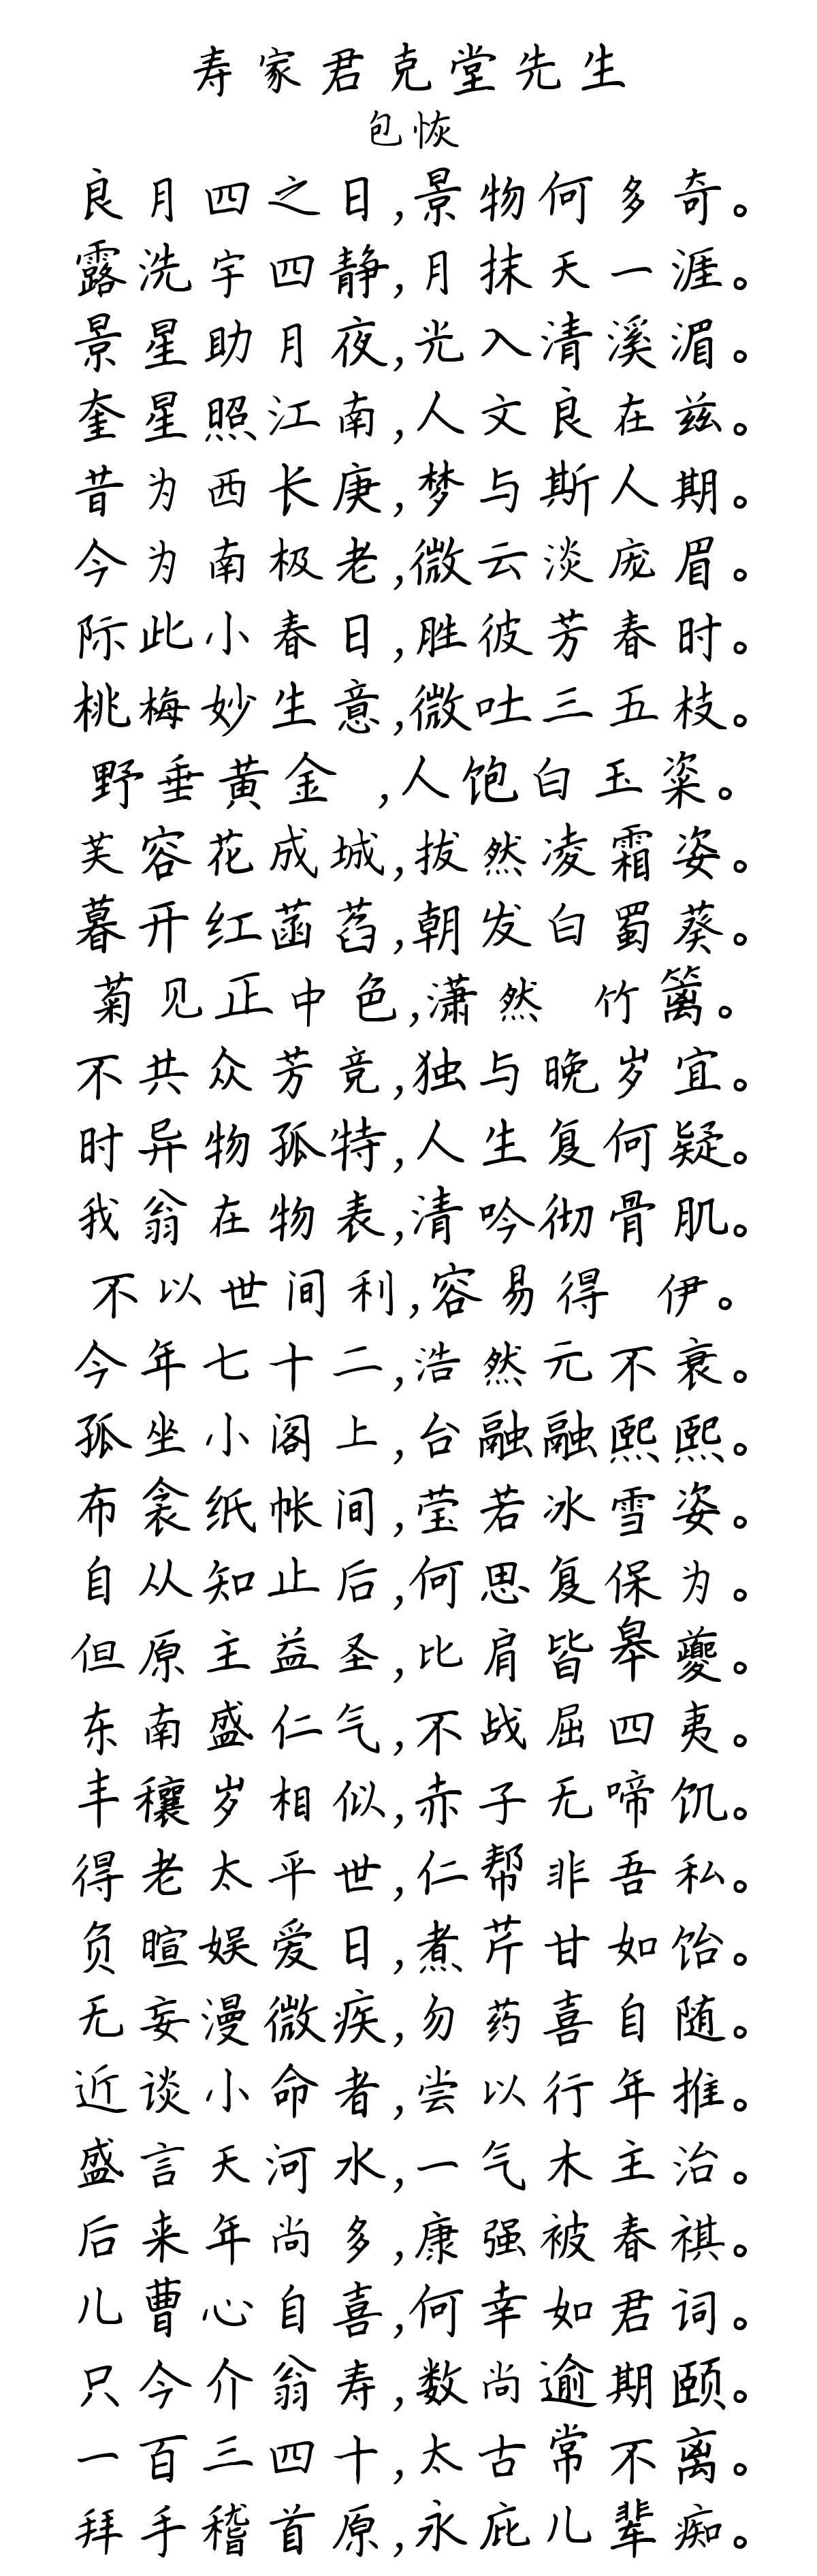 寿家君克堂先生
包恢
良月四之日,景物何多奇。
露洗宇四静,月抹天一涯。
景星助月夜,光入清溪湄。
奎星照江南,人文良在兹。
昔为西长庚,梦与斯人期。
今为南极老,微云淡庞眉。
际此小春日,胜彼芳春时。
桃梅妙生意,微吐三五枝。
野垂黄金 ,人饱白玉粢。
芙容花成城,拔然凌霜姿。
暮开红菡萏,朝发白蜀葵。
菊见正中色,潇然 竹篱。
不共众芳竞,独与晚岁宜。
时异物孤特,人生复何疑。
我翁在物表,清吟彻骨肌。
不以世间利,容易得 伊。
今年七十二,浩然元不衰。
孤坐小阁上,台融融熙熙。
布衾纸帐间,莹若冰雪姿。
自从知止后,何思复保为。
但原主益圣,比肩皆皋夔。
东南盛仁气,不战屈四夷。
丰穰岁相似,赤子无啼饥。
得老太平世,仁帮非吾私。
负暄娱爱日,煮芹甘如饴。
无妄漫微疾,勿药喜自随。
近谈小命者,尝以行年推。
盛言天河水,一气木主治。
后来年尚多,康强被春祺。
儿曹心自喜,何幸如君词。
只今介翁寿,数尚逾期颐。
一百三四十,太古常不离。
拜手稽首原,永庇儿辈痴。